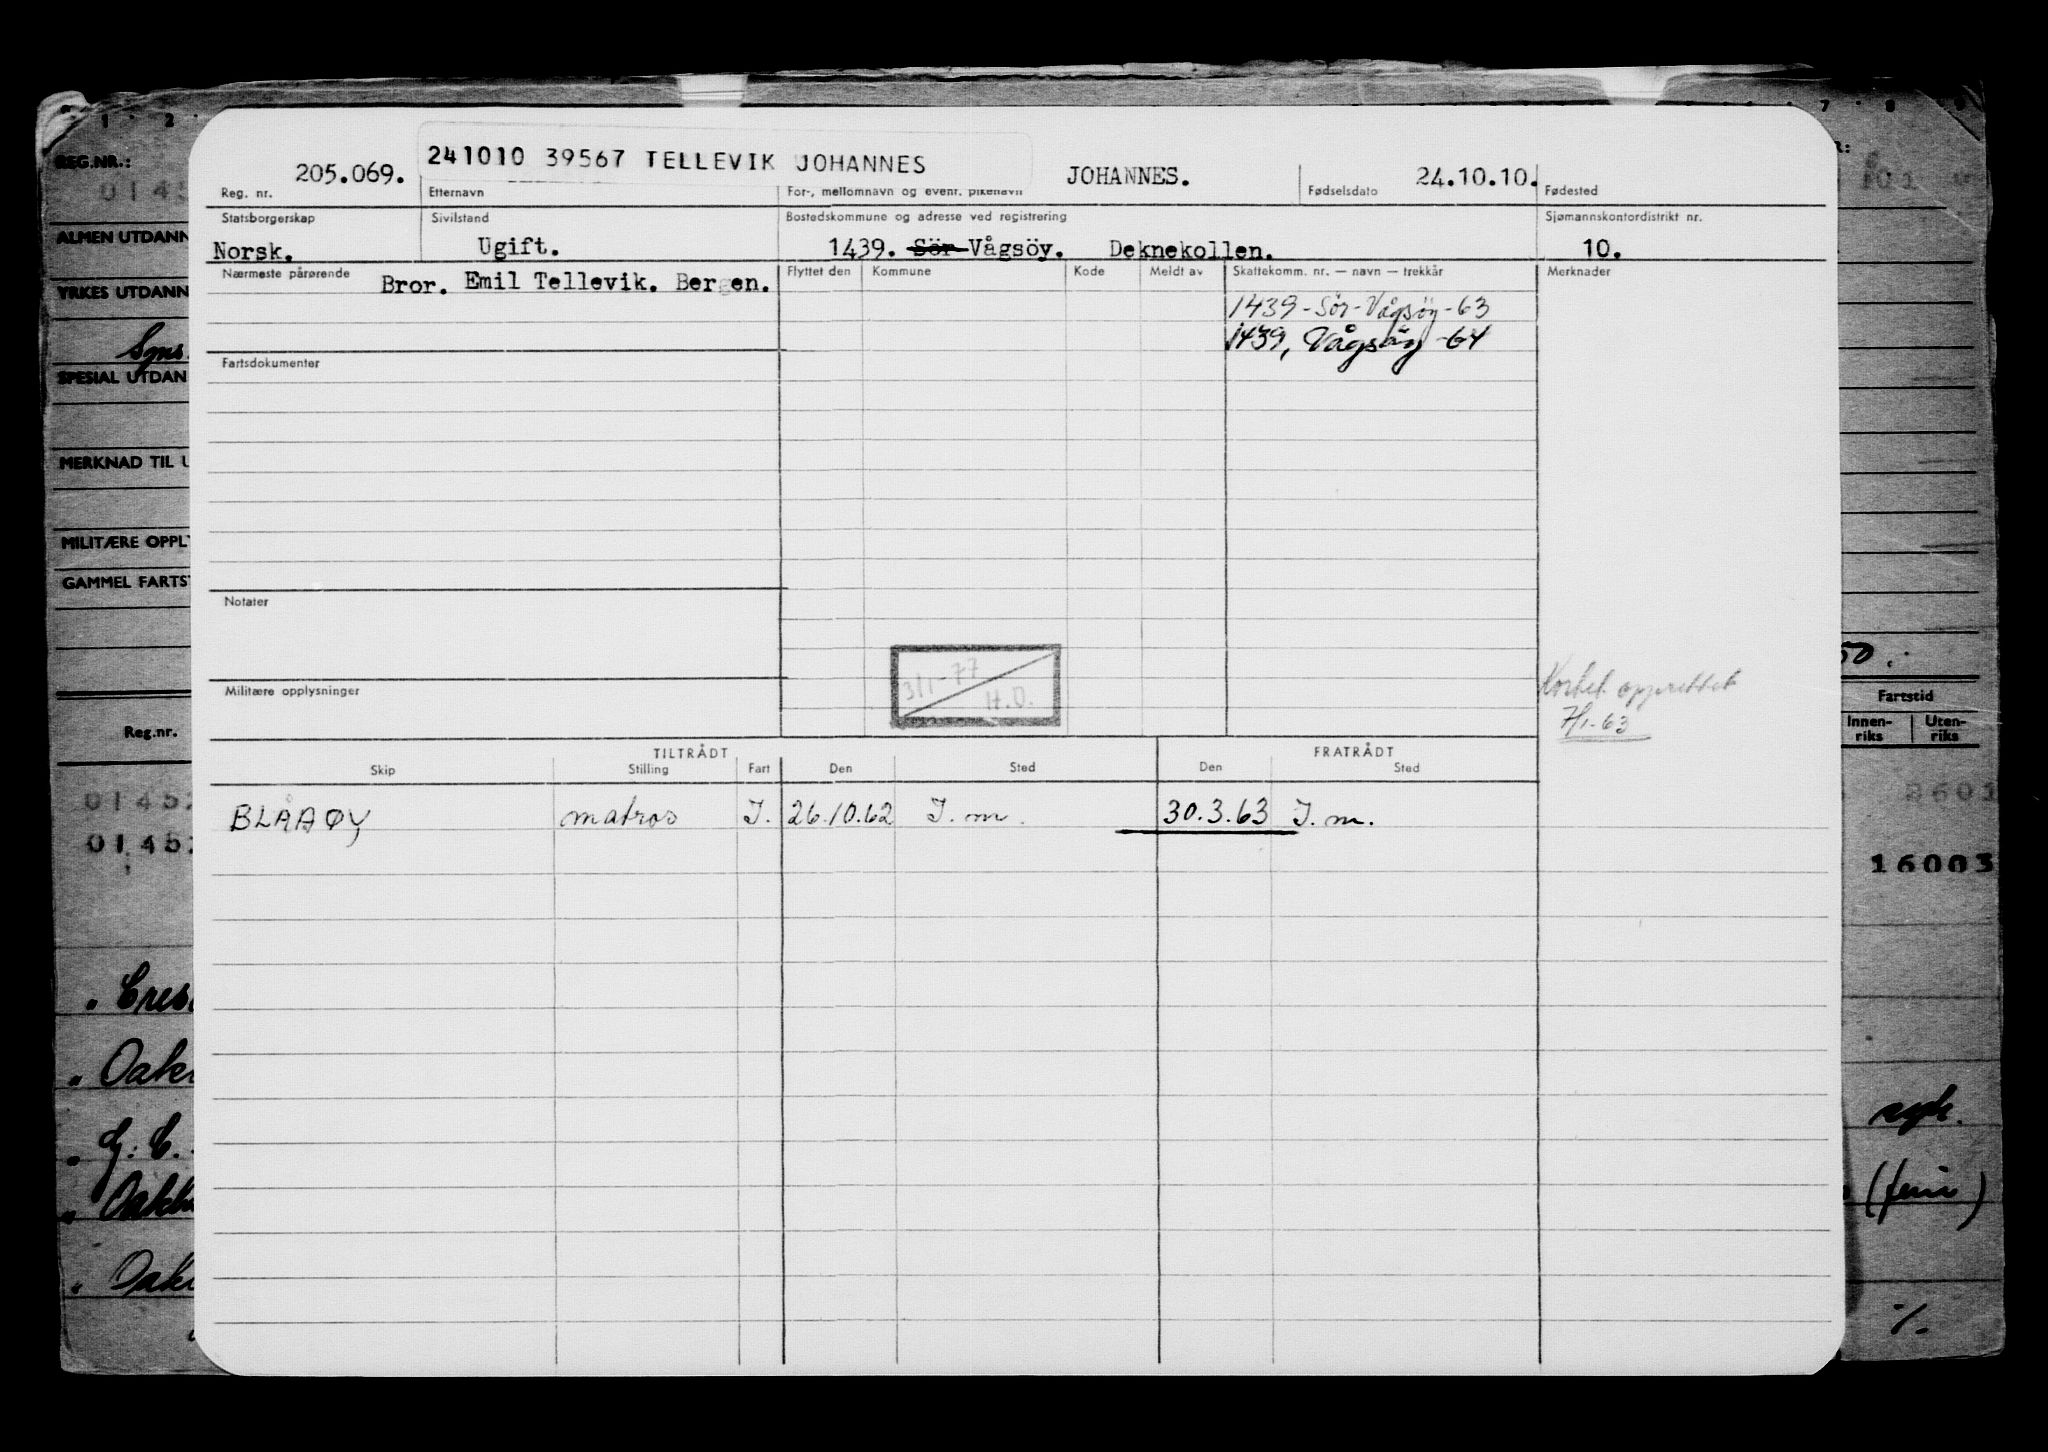 241010 39567 TELLEVIK JOHANNES
205.069. JOHANNES. 24.10.10.
Reg. nr. Etternavn For-, mellomnavn og evenr. pikenavn Fødselsdato Fødested
Statsborgerskap Sivilstand Bostedskommune og adresse ved registrering Sjømannskontordistrikt nr.
Norsk. Ugift. 1439. Sör-Vågsöy. Deknekollen. 10.
Nærmeste pårørende Flyttet den Kommune Kode Meldt av Skattekomm. nr. — navn — trekkår Merknader
Bror. Emil Tellevik. Bergen.
1439-Sör-Vågsöy-63
1439, Vågsöy -64
Fartsdokumenter
Notater
3/1-77
H.O.
Militære opplysninger
Kortet opprettet
7/1-63
TILTRÅDT FRATRÅDT
Skip Stilling Fart Den Sted Den Sted
BLÅAØY matros I. 26.10.62 I. m. 30.3.63 I. m.
REG.NR.:
ALMEN UTDANN
YRKES UTDANN
SPESIAL UTDAN
MERKNAD TIL U
MILITÆRE OPPL
GAMMEL FARTS
Reg.nr.
0145
0145
" Cres
" Oak
" G. C.
" Oakl
" Oak
50.
Fartstid
Innen-riks Uten-riks
8601
16003
syk.
(ferie)